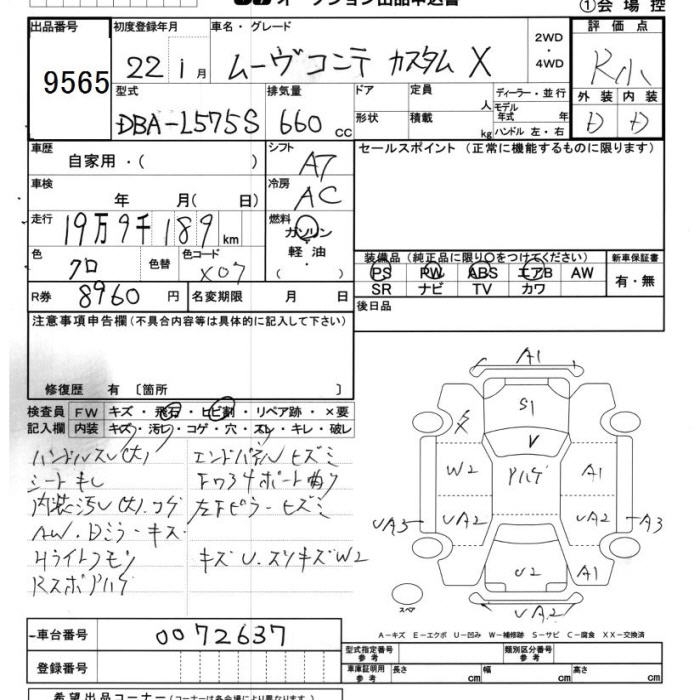 オークション出品申込書
①会場控
出品番号 初度登録年月 車名・グレード 評価点
9565 22年 1月 ムーヴコンテ カスタム X 2WD ・ 4WD R小
型式 排気量 ドア 定員 人 ディーラー・並行 外装 内装
DBA-L575S 660 CC 形状 積載 kg モデル年式 年 ハンドル 左・右 D D
車歴 自家用・( ) シフト AT セールスポイント (正常に機能するものに限ります)
車検 年 月( 日) 冷房 AC
走行 19万9千189 km 燃料 ガソリン・軽油・( )
色 クロ 色替 色コード X07
装備品 (純正品に限り○をつけてください) 新車保証書
PS PW ABS エアB AW 有・無
SR ナビ TV カワ
R券 8960 円 名変期限 月 日 後日品
注意事項申告欄 (不具合内容等は具体的に記入して下さい)
修復歴 有 〔箇所 〕
検査員 FW キズ・飛石・ヒビ割・リペア跡・×要
記入欄 内装 キズ・汚レ・コゲ・穴・スレ・キレ・破レ
ハンドルスレ(大) エンドパネルヒズミ
シートキレ Fワクサポート曲り
内装汚レ(大).コゲ 左Fピラーヒズミ
AW.Dミラーキズ
Hライトクモリ キズU.スリキズW2
RスポPハゲ
A1
S1
V
W2 Pハゲ A1
UA3 UA2 UA2 A3
U2 A1
UA2
スペア
A-キズ E-エクボ U-凹み W-補修跡 S-サビ C-腐食 XX-交換済
車台番号 0072637
型式指定番号 参考 類別区分番号 参考
登録番号
車庫証明用 参考 長さ cm 幅 cm 高さ cm
希望出品コーナー (コーナーは各会場により異なります。)